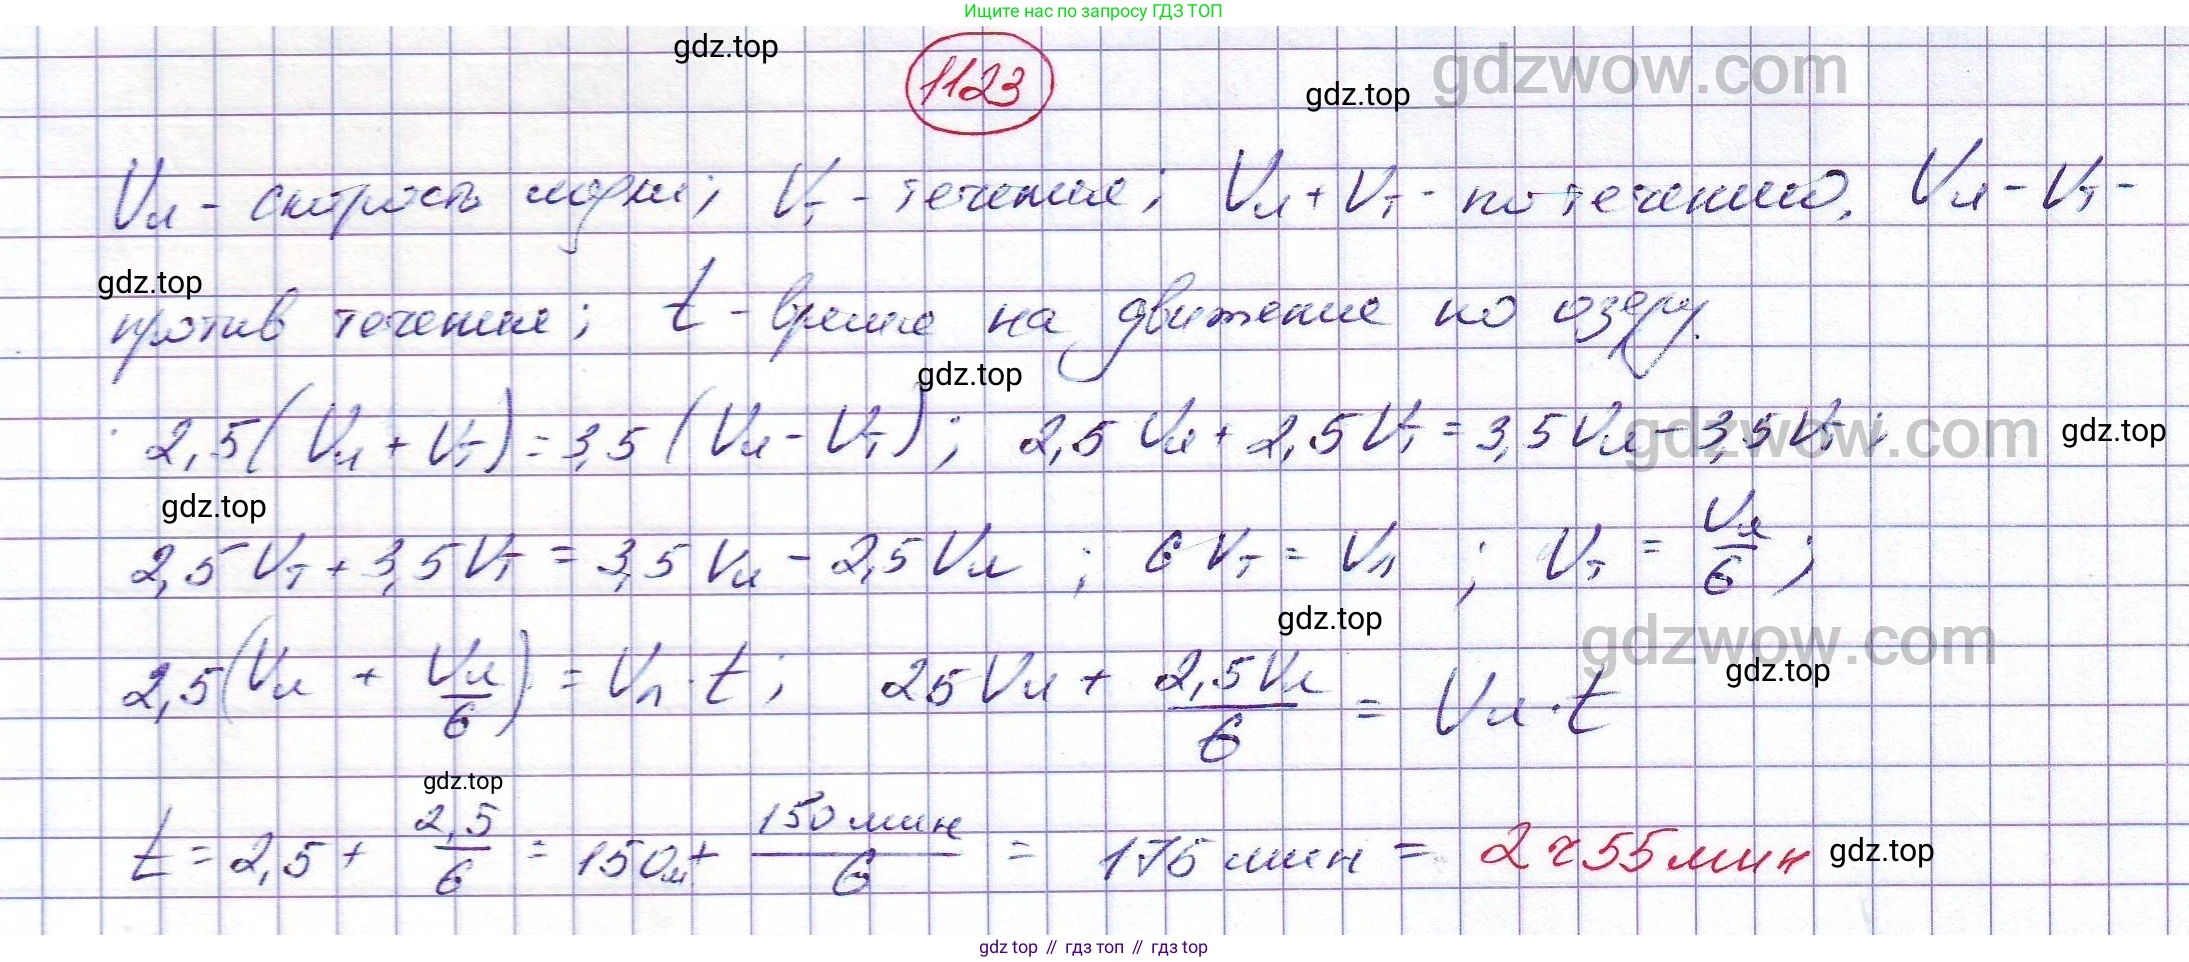 Ищите нас по запросу ГДЗ ТОП
gdz.top
1123
gdz.top
gdzwow.com
Vл - скорость лодки; Vт - течения; Vл + Vт - по течению, Vл - Vт -
gdz.top
против течения; t - время на движение по озеру.
gdz.top
2,5(Vл + Vт) = 3,5(Vл - Vт); 2,5Vл + 2,5Vт = 3,5Vл - 3,5Vт;
gdzwow.com
gdz.top
gdz.top
2,5Vт + 3,5Vт = 3,5Vл - 2,5Vл; 6Vт = Vл; Vт = Vл/6;
gdz.top
gdzwow.com
gdz.top
2,5(Vл + Vл/6) = Vл · t; 25Vл + 2,5Vл/6 = Vл · t
gdz.top
t = 2,5 + 2,5/6 = 150м + 150 мин/6 = 175 мин = 2 ч 55 мин
gdz.top
gdz top // гдз топ // гдз top